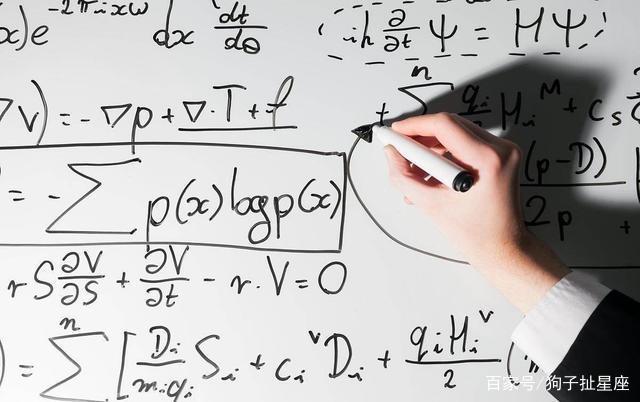 x)e^{-2πixω} dx dt/dθ
iħ ∂/∂t Ψ = HΨ
∇v) = -∇p + ∇·T + f
+ Σ^n q_i H_i^M + c_s
= - Σ p(x) log p(x)
(p-D)
2p +
rS ∂V/∂S + ∂V/∂t - r·V = 0
) = Σ^n [ D_i/m_i q_i S_i + c_i^v D_i + q_i H_i^v/2
百家号/狗子扯星座